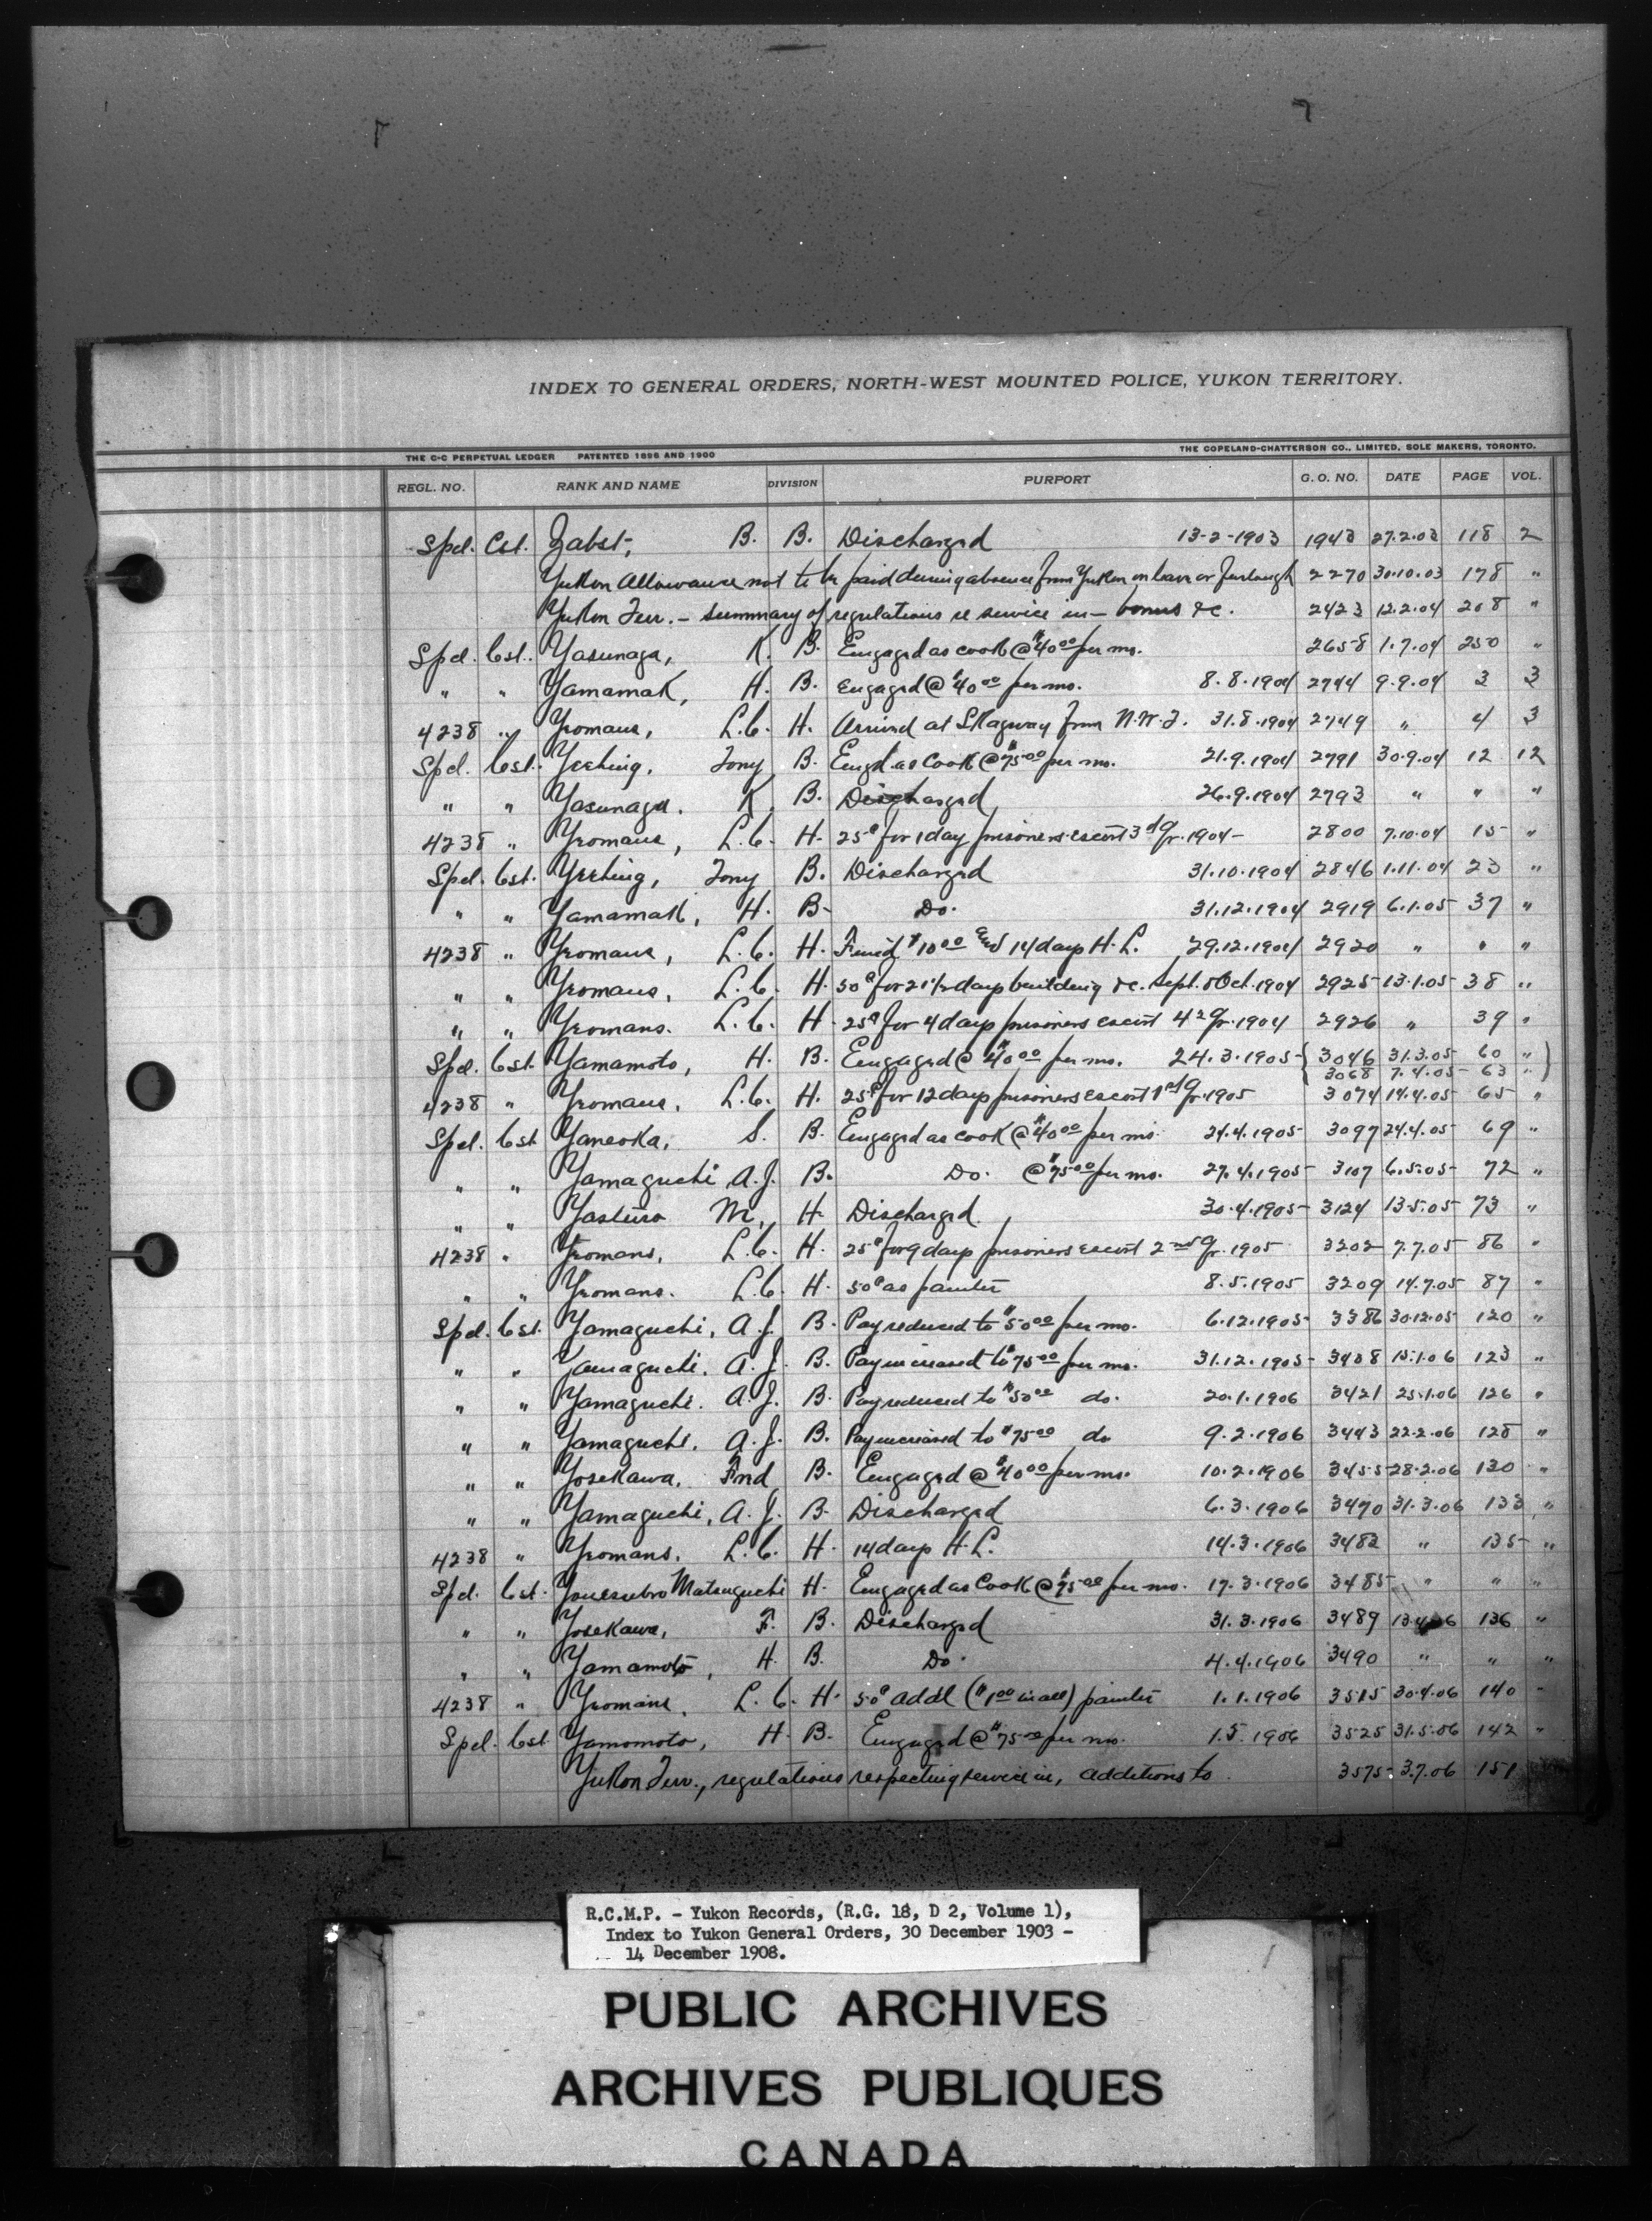 INDEX TO GENERAL ORDERS, NORTH-WEST MOUNTED POLICE, YUKON TERRITORY.
THE C-C PERPETUAL LEDGER PATENTED 1898 AND 1900 THE COPELAND-CHATTERSON CO., LIMITED, SOLE MAKERS, TORONTO.
REGL. NO. RANK AND NAME DIVISION PURPORT G. O. NO. DATE PAGE VOL.
Spel. Cst. Zabst, B. B. Discharged 13-2-1903 1943 27.2.03 118 2
Yukon Allowance not to be paid during absence from Yukon on leave or furlough 2270 30.10.03 178 "
Yukon Terr. - summary of regulations re service in - bonus &c. 2423 12.2.04 208 "
Spel. Cst. Yasunaga, K. B. Engaged as cook @ $40.00 per mo. 2658 1.7.04 250 "
" " Yamamak, H. B. Engaged @ $40.00 per mo. 8.8.1904 2744 9.9.04 3 3
4238 " Yeomans, L.C. H. Arrived at Skagway from N.W.T. 31.8.1904 2749 " 4 3
Spel. Cst. Yeehing, Tony B. Engd as Cook @ $75.00 per mo. 21.9.1904 2791 30.9.04 12 12
" " Yasunaga. K. B. Discharged 26.9.1904 2793 " " "
4238 " Yeomans, L.C. H. 25¢ for 1 day prisoners escort 3rd Qr. 1904- 2800 7.10.04 15 "
Spel. Cst. Yeehing, Tony B. Discharged 31.10.1904 2846 1.11.04 23 "
" " Yamamak, H. B. Do. 31.12.1904 2919 6.1.05 37 "
4238 " Yeomans, L.C. H. Fined $10.00 and 14 days H.L. 29.12.1904 2920 " " "
" " Yeomans, L.C. H. 50¢ for 21½ days building &c. Sept. & Oct. 1904 2925 13.1.05 38 "
" " Yeomans. L.C. H. 25¢ for 4 days prisoners escort 4th Qr. 1904 2926 " 39 "
Spel. Cst. Yamamoto, H. B. Engaged @ $40.00 per mo. 24.3.1905 { 3046 31.3.05 60 " }
3068 7.4.05 63 "
4238 " Yeomans, L.C. H. 25¢ for 12 days prisoners escort 1st Qr. 1905 3074 14.4.05 65 "
Spel. Cst Yaneoka, S. B. Engaged as cook @ $40.00 per mo. 24.4.1905 3097 24.4.05 69 "
" " Yamaguchi, A.J. B. Do. @ $75.00 per mo. 27.4.1905 3107 6.5.05 72 "
" " Yasturo M. H. Discharged. 30.4.1905 3124 13.5.05 73 "
4238 " Yeomans, L.C. H. 25¢ for 9 days prisoners escort 2nd Qr. 1905 3202 7.7.05 86 "
" " Yeomans. L.C. H. 50¢ as painter 8.5.1905 3209 14.7.05 87 "
Spel. Cst. Yamaguchi, A.J. B. Pay reduced to $50.00 per mo. 6.12.1905 3386 30.12.05 120 "
" " Yamaguchi. A.J. B. Pay increased to $75.00 per mo. 31.12.1905 3408 15.1.06 123 "
" " Yamaguchi. A.J. B. Pay reduced to $50.00 do. 20.1.1906 3421 25.1.06 126 "
" " Yamaguchi. A.J. B. Pay increased to $75.00 do 9.2.1906 3443 22.2.06 128 "
" " Yosekawa, Fnd B. Engaged @ $40.00 per mo. 10.2.1906 3455 28.2.06 130 "
" " Yamaguchi, A.J. B. Discharged 6.3.1906 3470 31.3.06 133 "
4238 " Yeomans. L.C. H. 14 days H.L. 14.3.1906 3483 " 135 "
Spel. Cst. Matsuguchi H. Engaged as Cook @ $75.00 per mo. 17.3.1906 3485 " " "
" " Yosekawa, F. B. Discharged 31.3.1906 3489 13.4.06 136 "
" " Yamamoto, H. B. Do. 4.4.1906 3490 " " "
4238 " Yeomans, L.C. H. 50¢ addl ($1.00 in all) painter 1.1.1906 3515 30.4.06 140 "
Spel. Cst Yamomoto, H. B. Engaged @ $75.00 per mo. 1.5.1906 3525 31.5.06 142 "
Yukon Terr., regulations respecting service in, additions to 3575 3.7.06 151
R.C.M.P. - Yukon Records, (R.G. 18, D 2, Volume 1),
Index to Yukon General Orders, 30 December 1903 -
14 December 1908.
PUBLIC ARCHIVES
ARCHIVES PUBLIQUES
CANADA